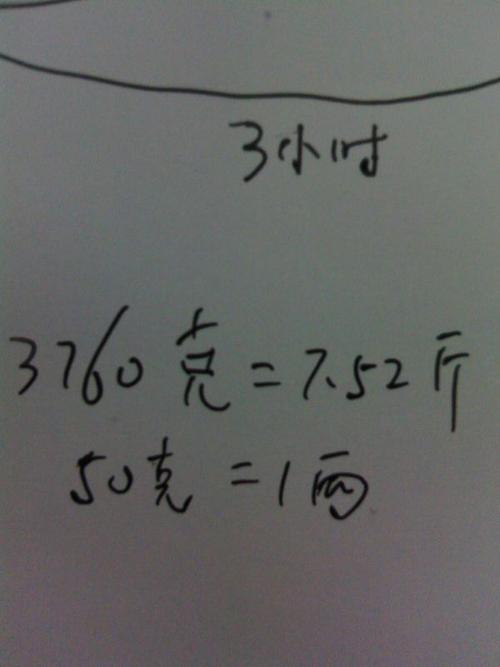 3小时
3760克=7.52斤
50克=1两